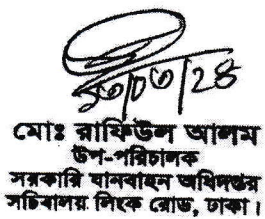 ১৩/০৩/২৪
মোঃ রাফিউল আলম
উপ-পরিচালক
সরকারি যানবাহন অধিদপ্তর
সচিবালয় লিংক রোড, ঢাকা।